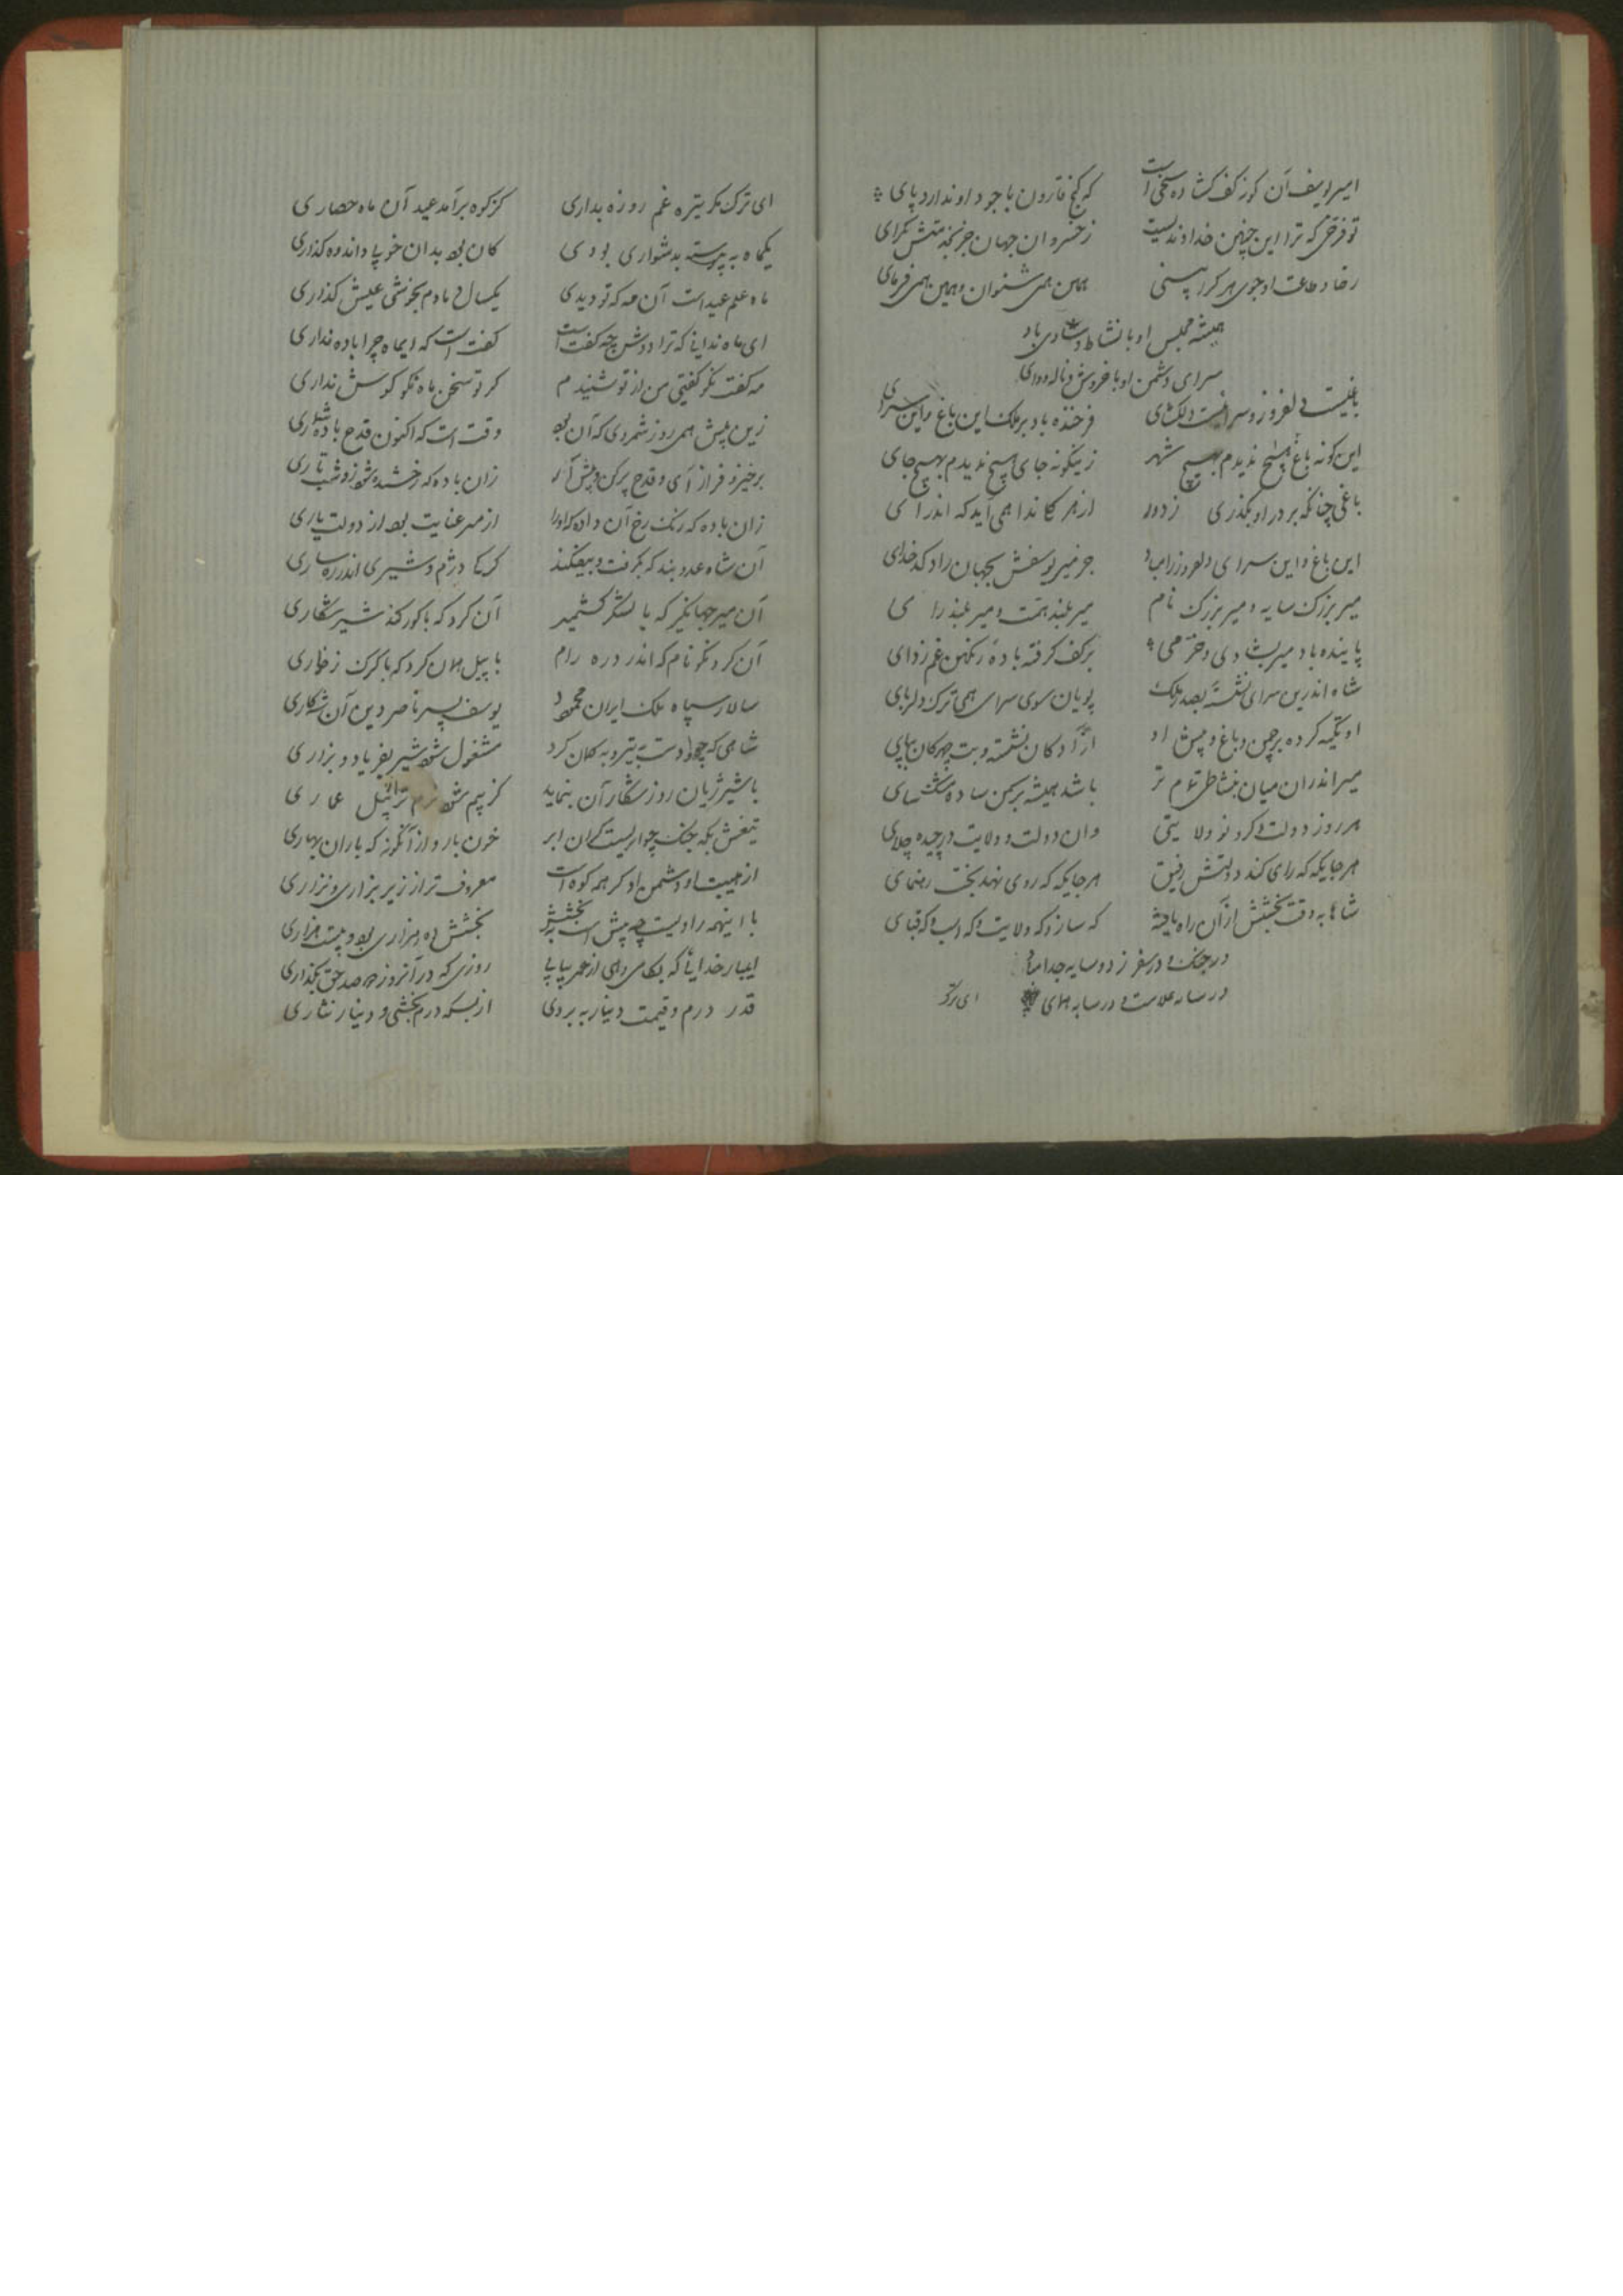 امیر یوسف آن کوز کف کشاده سخی است که کنج قارون با جود او ندارد پای
تو فرخی که ترا این چنین خداوندیست ز خسروان جهان جز بخدمتش مکرای
رضا و طاعت او جوی هر کرا بینی همین همی شنوان و همین همی فرمای
همیشه مجلس او با نشاط و شادی باد
سرای دشمن او با خروش و ناله و وای
باغیست دلفروز و سرائیست دلکشای فرخنده باد بر ملک این باغ و این سرای
این کونه باغ هیچ ندیدم بهیچ شهر زینکونه جای هیچ ندیدم بهیچ جای
باغی چنانکه بر در او بکذری ز دور از هر کجا ندا همی آید که اندر آی
این باغ و این سرای دلفروز را مباد جز میر یوسفش بجهان راد کدخدای
میر بزرک سایه و میر بزرک نام میر بلند همت و میر بلند رای
پاینده باد میر بشادی و خرمی بر کف کرفته باده رنکین غم زدای
شاه اندرین سرای نشسته بصدر ملک پویان سوی سرای همی ترک دلربای
او تکیه کرده بر چمن و باغ و پیش او آزادکان نشسته و بت چهرکان بپای
میر اندران میان بنشاطی و باشد همیشه بر
هر روز دولت دکر و نو ولایتی وان دولت و ولایت
هر جایکه که رای کند دولتش رفیق هر جایکه که روی نهد بخت رهنمای
شاها به وقت بخشش از آن راه یافته که ساز و که ولایت و که اسب و که قبای
در جنک و در سفر ز دو سایه جدا مباد
در سایه علامت و در سایه همای ای ترک
ای ترک مکر تیره غم روزه بداری کز کوه برآمد عید آن ماه حصاری
یکماه به پیوسته بدشواری بودی کان بود بدان خو پا و اندوه کذاری
ماه علم عید است آن مه که تو دیدی یکسال دمادم بخوشی عیش کذاری
ای ماه ندانی که ترا دوش چه کفت است کفت است که ایماه چرا باده نداری
مه کفت نکو کفتی من از تو شنیدم کر تو سخن ماه نکو کوش نداری
زین پیش همی روز شمردی که آن بود وقت است که اکنون قدح باده شماری
برخیز و فراز آی و قدح پر کن و پیش آر زان باده که رخشنده شود زو شب تاری
زان باده که رنک رخ آن داده که او را از میر عنایت بود از دولت یاری
آن شاه عدو بند که بکرفت و بیفکند کرکی دژم و شیری اندر ره ساری
آن میر جهانکیر که با لشکر کشمیر آن کرد که با کور کند شیر شکاری
آن کرد نکو نام که اندر دره رام با پیل همان کرد که با کرک ز خواری
سالار سپاه ملک ایران محمود یوسف پسر ناصر دین آن شه کاری
شاهی که چو او دست به تیر و به کمان کرد مشغول شود شیر بفریاد و بزاری
با شیر ژیان روز شکار آن بنماید کز بیم شود نرم تر از پیل عماری
تیغش بکه جنک چو ابریست کران ابر خون بارد از آنکونه که باران بهاری
از هیبت او دشمن او کر همه کوه است معروف تر از زیر بزاری و نزاری
با اینهمه رادیست چه پیش است به بخشش بخشش ده هزاری بود و بیست هزاری
ایبار خدایا که بکام دل از عمر بیابی روزی که در آنروز دو صد حق بکذاری
قدر درم و قیمت دینار به بردی از بسکه درم بخشی و دینار نثاری